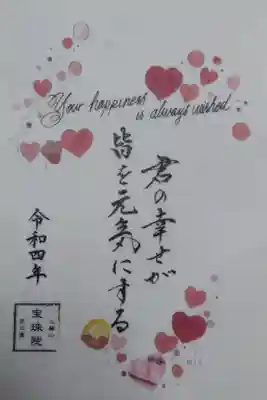 Your happiness
is always wished
君の幸せが
皆を元気にする
令和四年
宝珠院